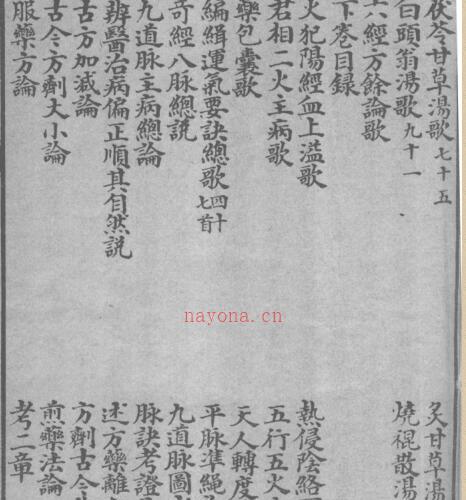 茯苓甘草湯歌七十五
炙甘草湯
白頭翁湯歌九十一
燒裩散湯
六經方餘論歌
下卷目録
火犯陽經血上溢歌
熱侵陰絡
君相二火主病歌
五行五火
藥包囊歌
天人轉度
編緝運氣要訣總歌四十七首
平脉準繩
奇經八脉總説
九道脉圖
九道脉主病總論
脉訣考證
辨醫治病偏正順其自然説
述方藥離
古方加減論
方劑古今
古今方劑大小論
煎藥法論
服藥方論
考二章
nayona.cn